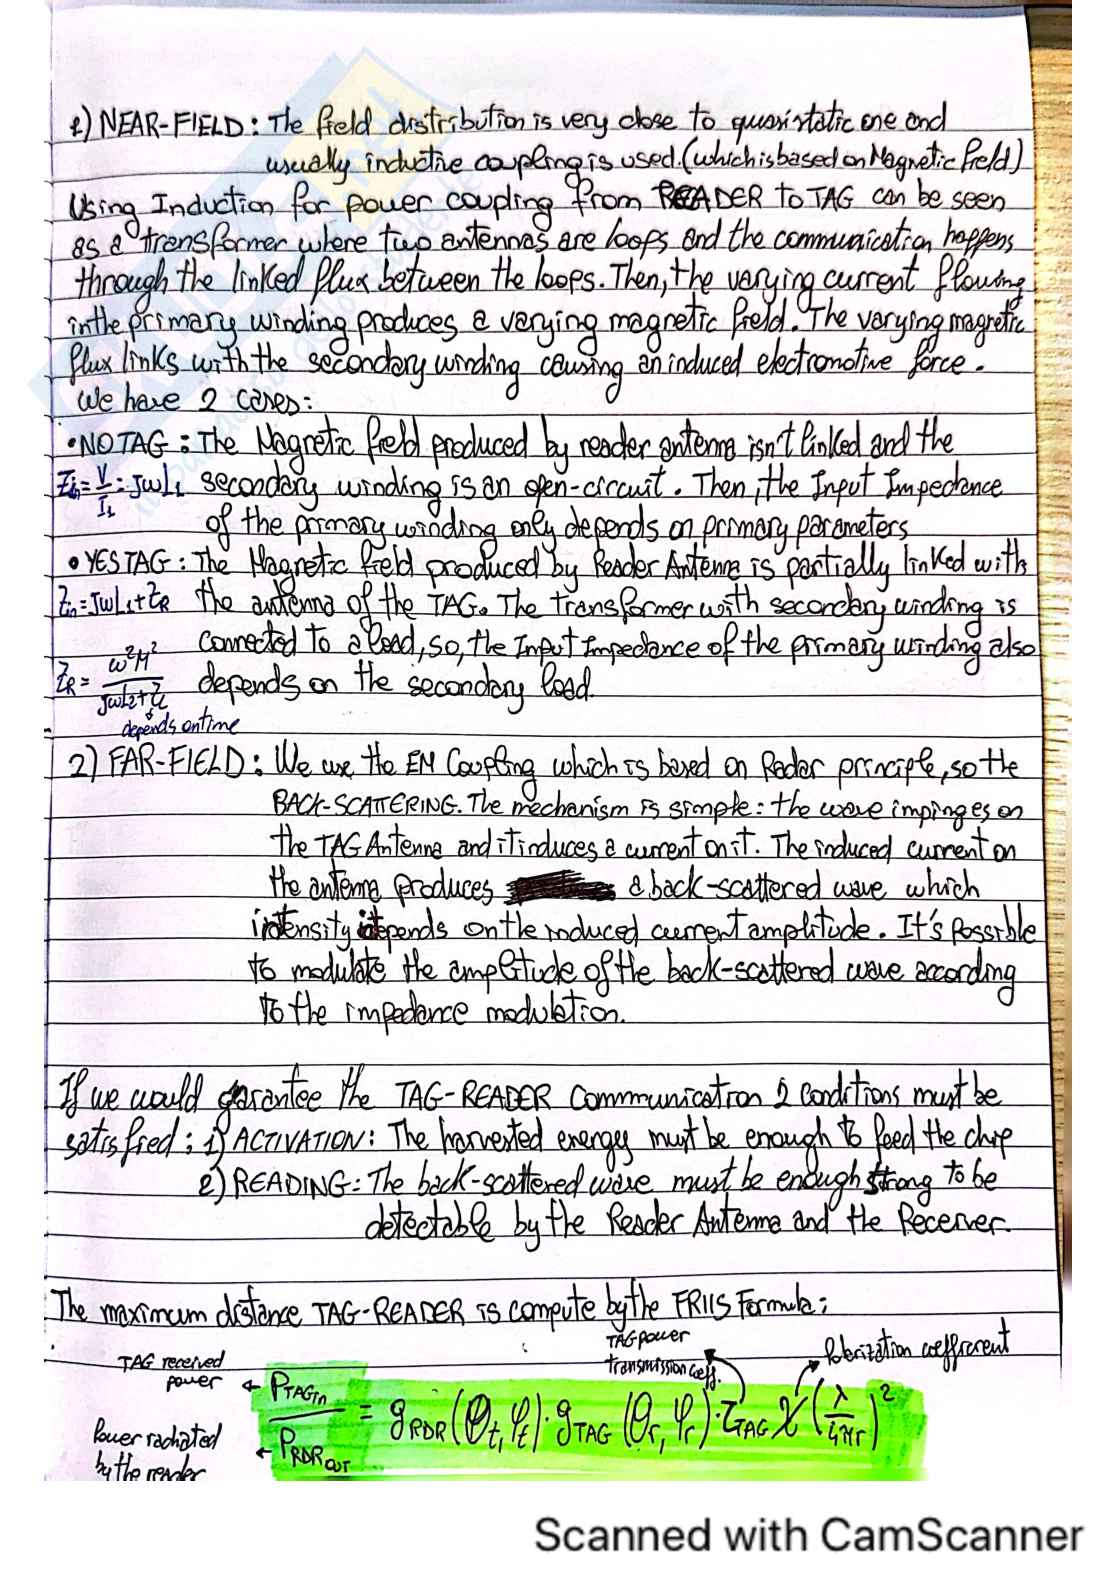 1) NEAR-FIELD: The field distribution is very close to quasistatic one and
usually inductive coupling is used. (which is based on Magnetic field)
Using Induction for power coupling from READER to TAG can be seen
as a transformer where two antennas are loops and the communication happens
through the linked flux between the loops. Then, the varying current flowing
in the primary winding produces a varying magnetic field. The varying magnetic
flux links with the secondary winding causing an induced electromotive force.
We have 2 cases:
• NO TAG: The Magnetic field produced by reader antenna isn't linked and the
Zin = V/I1 = jωL1 secondary winding is an open-circuit. Then, the Input Impedance
of the primary winding only depends on primary parameters
• YES TAG: The Magnetic field produced by Reader Antenna is partially linked with
Zin = jωL1 + ZR the antenna of the TAG. The transformer with secondary winding is
connected to a load, so, the Input Impedance of the primary winding also
ZR = ω²M²/(jωL2+ZL) depends on the secondary load.
depends on time
2) FAR-FIELD: We use the EM Coupling which is based on Radar principle, so the
BACK-SCATTERING. The mechanism is simple: the wave impinges on
the TAG Antenna and it induces a current on it. The induced current on
the antenna produces a back-scattered wave which
intensity depends on the induced current amplitude. It's Possible
to modulate the amplitude of the back-scattered wave according
to the impedance modulation.
If we would garantee the TAG-READER Communication 2 Conditions must be
satisfied: 1) ACTIVATION: The harvested energy must be enough to feed the chip
2) READING: The back-scattered wave must be enough strong to be
detectable by the Reader Antenna and the Receiver.
The maximum distance TAG-READER is compute by the FRIIS Formula:
TAG power
transmission coeff.
Polarization coefficient
TAG received
power
PTAGin/PRDROUT = gRDR(θt,φt)·gTAG(θr,φr)·τTAG χ(λ/4πr)²
Power radiated
by the reader
Scanned with CamScanner